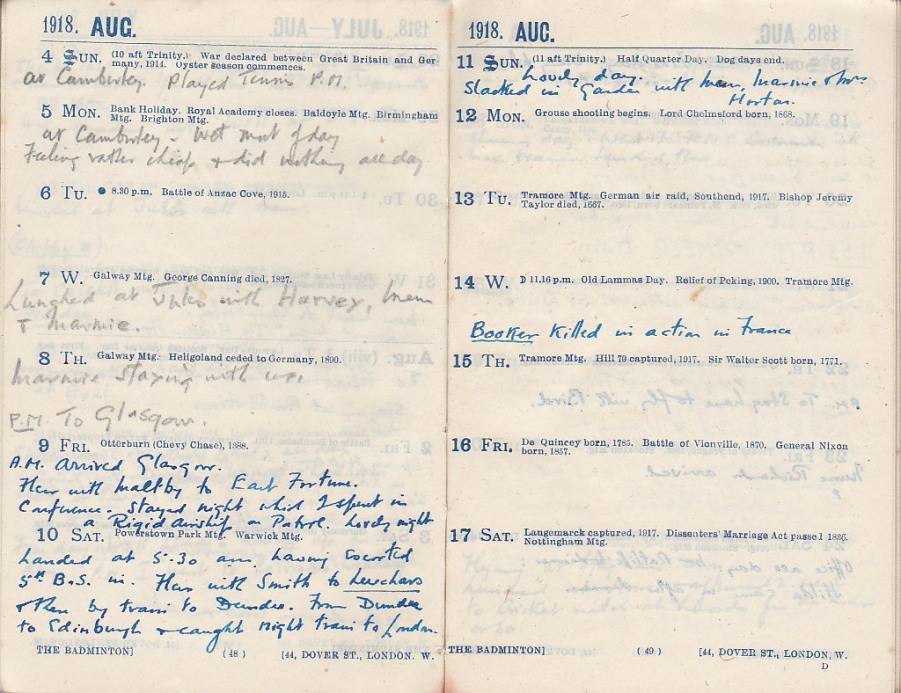 1918. AUG.
4 SUN. (10 aft Trinity.) War declared between Great Britain and Ger-
many, 1914. Oyster season commences.
at Camberley. Played Tennis P.M.
5 MON. Bank Holiday. Royal Academy closes. Baldoyle Mtg. Birmingham
Mtg. Brighton Mtg.
at Camberley - Wet most of day
Feeling rather cheap & did nothing all day
6 TU. ● 8.30 p.m. Battle of Anzac Cove, 1915.
7 W. Galway Mtg. George Canning died, 1827.
Lunched at with Harvey, Mam
& Marmie.
8 TH. Galway Mtg. Heligoland ceded to Germany, 1890.
Marmie staying with us.
P.M. To Glasgow.
9 FRI. Otterburn (Chevy Chase), 1388.
A.M. arrived Glasgow.
Flew with Maltby to East Fortune.
Conference. Stayed night which I spent in
a Rigid airship on Patrol. Lovely night
10 SAT. Powerstown Park Mtg. Warwick Mtg.
Landed at 5-30 am, having escorted
5th B.S. in. Flew with Smith to Leuchars
& then by train to Dundee. From Dundee
to Edinburgh & caught night train to London.
THE BADMINTON] (48) [44, DOVER ST., LONDON. W.
1918. AUG.
11 SUN. (11 aft Trinity.) Half Quarter Day. Dog days end.
Lovely day.
Slacked in Garden with Mam, Marmie & Mrs.
Horton.
12 MON. Grouse shooting begins. Lord Chelmsford born, 1868.
13 TU. Tramore Mtg. German air raid, Southend, 1917. Bishop Jeremy
Taylor died, 1667.
14 W. ☽ 11.16 p.m. Old Lammas Day. Relief of Peking, 1900. Tramore Mtg.
Booker killed in action in France
15 TH. Tramore Mtg. Hill 70 captured, 1917. Sir Walter Scott born, 1771.
16 FRI. De Quincey born, 1785. Battle of Vionville, 1870. General Nixon
born, 1857.
17 SAT. Langemarck captured, 1917. Dissenters' Marriage Act passed 1836.
Nottingham Mtg.
THE BADMINTON] (49) [44, DOVER ST., LONDON, W.
D